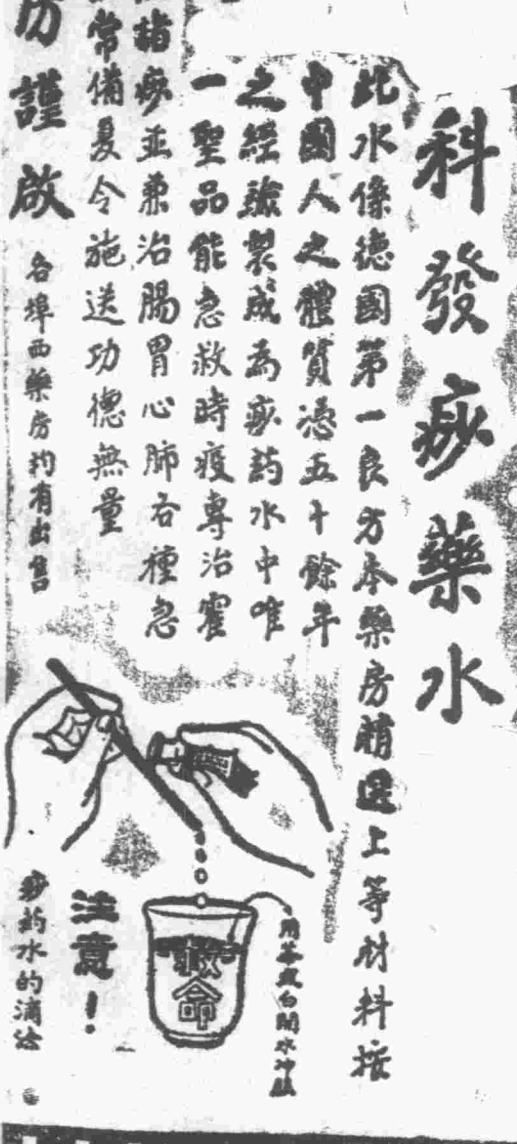 科發痧藥水
此水係德國第一良方本藥房精選上等材料按
中國人之體質憑五十餘年
之經驗製成為痧药水中唯
一聖品能急救時疫專治霍
痧並兼治腸胃心肺各種急
常備夏令施送功德無量
謹啟
各埠西藥房均有出售
用茶或白開水冲服
救命
注意！
痧药水的滴法